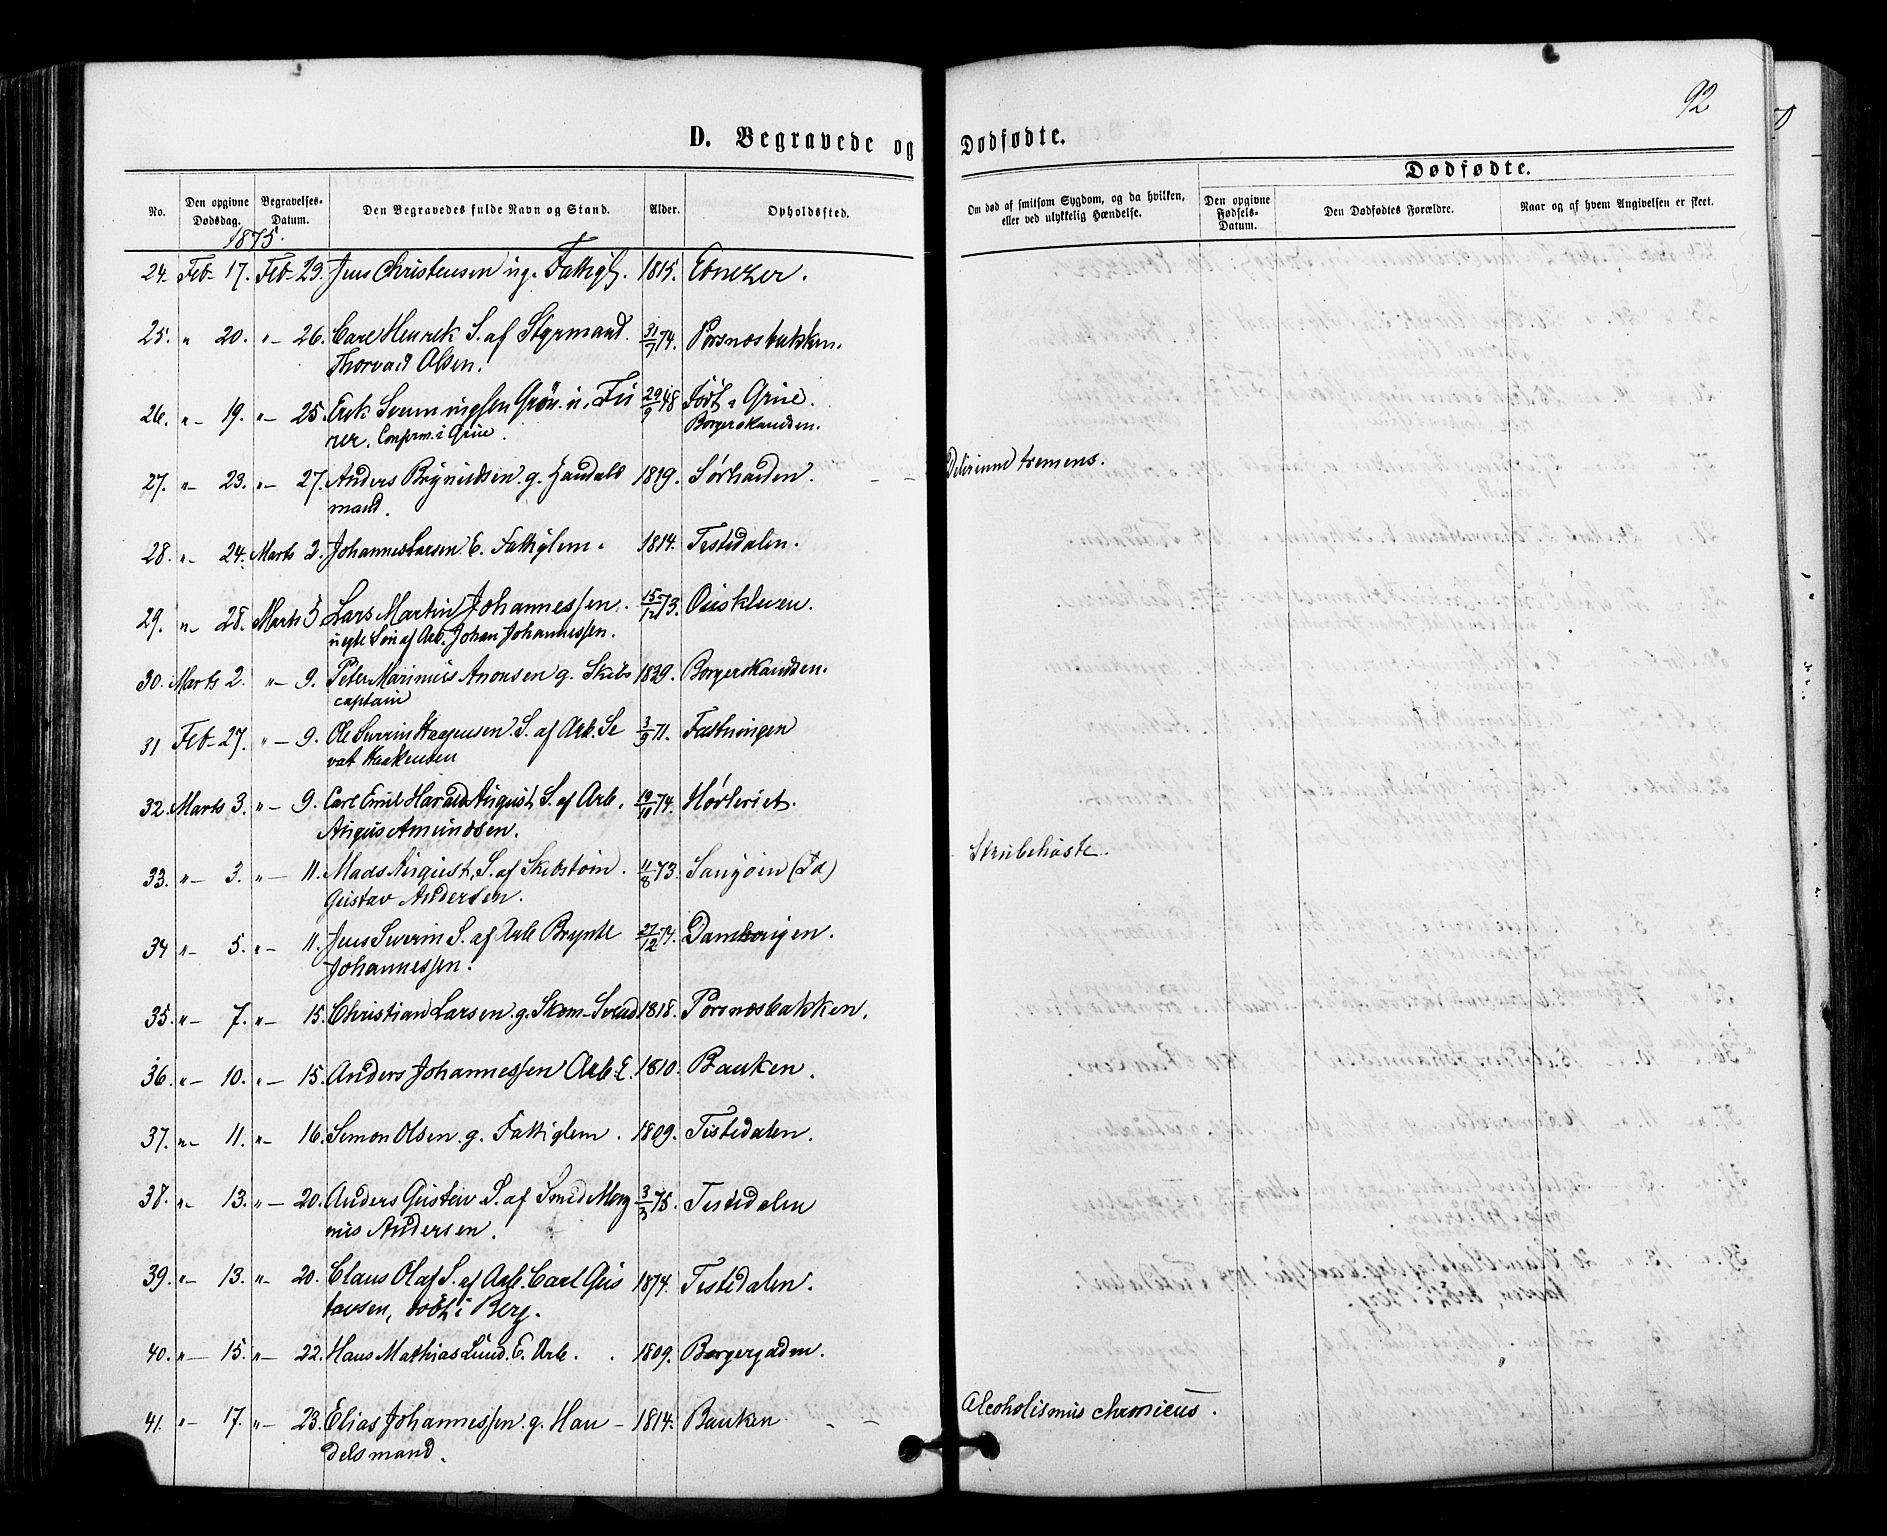 92
D. Begravede og Dødfødte.
Dødfødte.
No. Den opgivne Dødsdag. Begravelses-Datum. Den Begravedes fulde Navn og Stand. Alder. Opholdssted. Om død af smitsom Sygdom, og da hvilken, eller ved ulykkelig Hændelse. Den opgivne Fødsels-Datum. Den Dødfødtes Forældre. Naar og af hvem Angivelsen er skeet.
1875.
24. Feb. 17. Feb. 23. Jens Christensen ug. Fattigl. 1815. Ebnezer.
25. " 20. " 26. Carl Henrik S. af Styrmand 31/7 74. Porsnæsbakken.
Thorvald Olsen.
26. " 19. " 25. 29/9 48 Født i Grue.
Confirm. i Grue. Borgerskandsen.
27. " 23. " 27. Anders Brynildsen g. Handels 1819. Sørhalden. Delirium tremens.
mand.
28. " 24. Marts 2. Johannes Larsen E. Fattiglem. 1814. Tistedalen.
29. " 28. Marts 5. Lars Martin Johannessen. 15/12 73.
uegte Søn af Arb. Johan Johannessen.
30. Marts 2. " 9. Peter Marinius Aronsen g. Skibs 1829. Borgerskandsen.
captain
31 Feb. 27. " 9. Ole Severin Haagensen S. af Arb. Se 3/9 71. Fæstningen
vat Haakensen
32. Marts 3. " 9. Carl Emil Harald August S. af Arb. 19/10 74. Høvleriet.
August Amundsen.
33. " 3. " 11. Mads August, S. af Skibstøm. 11/8 73. Saugøen (Id) Strubehoste.
Gustav Andersen.
34 " 5. " 11. Jens Severin S. af Arb Brynte 27/12 74.
Johannessen.
35. " 7. " 15. Christian Larsen g. Skom-Svend 1818. Porsnæsbakken.
36. " 10. " 15. Anders Johannessen Arb. E. 1810. Banken.
37. " 11. " 16. Simon Olsen g. Fattiglem. 1809. Tistedalen.
38. " 13. " 20. Anders Gustav S. af Smed Mag 3/3 75. Tistedalen
nus Andersen.
39. " 13. " 20. Claus Olaf S. af Arb. Carl Gus 1874. Tistedalen.
tavsen, døbt i Berg.
40. " 15. " 22. Hans Mathias Lund. E. Arb. 1809. Borgergaden.
41. " 17. " 23. Elias Johannessen g. Han- 1814. Banken Alcoholismus chronicus.
delsmand.